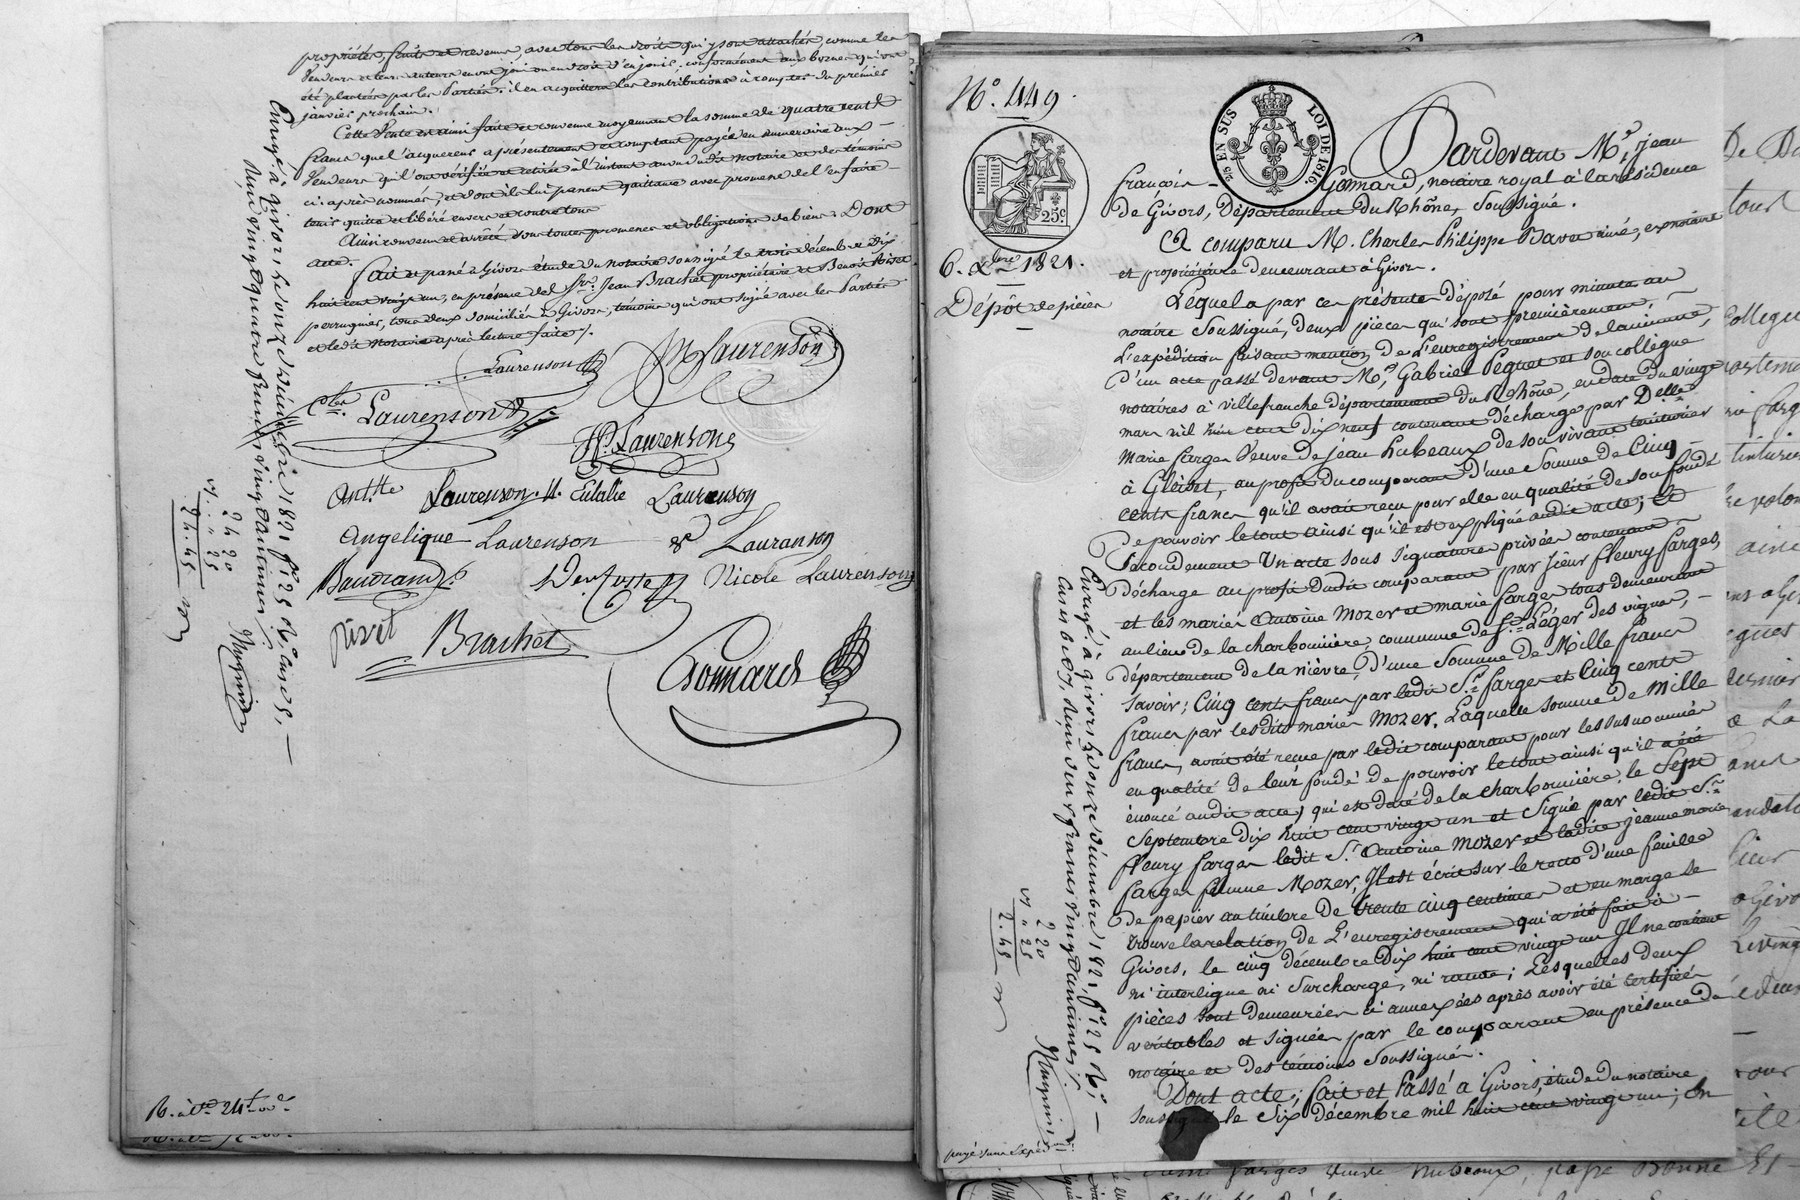 propriétés, fruits et revenus, avec tous les droits qui y sont attachés, comme les
Vendeurs et leurs auteurs en ont joui ou eu droit d'en jouir, conformément aux bornes qui ont
été plantées par les Parties. il en acquittera les contributions à compter du premier
janvier prochain.
Cette Vente est ainsi faite et convenue moyennant la somme de quatre cent
francs que l'acquereur a présentement et comptant payée en numéraire aux
Vendeurs qui l'ont vérifiée et retirée à l'instant au vu dudit Notaire et des témoins
ci-après nommés, et dont ils lui passent quittance avec promesse de l'en faire
tenir quitte et libéré envers et contre tous
Ainsi convenu et arrêté sous toutes promesses et obligations de biens. Dont
acte.
Fait et passé à Givors étude du notaire soussigné le trois décembre dix
huit cent vingt un, en présence des Srs. Jean Brachet propriétaire et Benoit Rivet
perruquier, tous deux domiciliés à Givors, témoins qui ont signé avec les Parties
et ledit Notaire après lecture faite.
Laurenson
Laurenson
Laurenson
Laurenson
Laurenson. M. Eulalie Laurenson
Angelique Laurenson
Lauranson
Nicole Laurenson
Baudrand
Rivet
Brachet
Gonnard
Enregé à givors le onze décembre 1821, f° 125 R°, cases,
Reçu vingt quatre francs vingt centimes
24 20
vs " 25
24.45
No. 449.
25c
EN SUS
LOI DE 1816
Pardevant Me. jean
françois Gonnard, notaire royal à la résidence
de Givors, Département du Rhône, Soussigné.
A comparu M. Charles Philippe Bavet ainé, exnotaire
et propriétaire demeurant à Givors.
6. Xbre 1821.
Dépôt de pièces
Lequel a par ces présentes déposé pour minute au
notaire Soussigné, deux pièces qui sont premièrement,
L'expédition faisant mention de L'enregistrement de la minute,
d'un acte passé devant Me. Gabriel Peguet et son collègue
notaires à villefranche département du Rhône, en date du vingt
mars mil huit cent dix neuf contenant décharge par Delle
Marie farges Veuve de jean hubeaux de son vivant teinturier
à Gleizet, au profit du comparant d'une Somme de Cinq
cents francs qu'il avait reçu pour elle en qualité de son fondé
de pouvoir le tout ainsi qu'il est expliqué audit acte; Et
Secondement Un acte sous signature privée contenant
décharge au profit dudit comparant par sieur fleury farges,
et les mariés Antoine Mozer et marie farges tous demeurant
au lieu de la charbonnière, commune de St. Léger des vignes,
département de la nièvre, d'une Somme de Mille francs
savoir; Cinq cents francs par ledit Sr. farges et Cinq cents
francs par lesdits mariés Mozer. Laquelle somme de mille
francs, avait été reçue par ledit comparant pour les susnommés
en qualité de leur fondé de pouvoir le tout ainsi qu'il a été
énoncé audit acte, qui est daté de la charbonnière, le Sept
Septembre dix huit cent vingt un et Signé par ledit Sr.
fleury farges ledit Sr. Antoine Mozer et ladite jeanne marie
farges femme Mozer; Il est écrit sur le recto d'une feuille
de papier au timbre de trente cinq centimes et en marge se
trouve la relation de L'enregistrement qui a été fait à
Givors, le cinq décembre dix huit cent vingt un Il ne contient
ni interligne ni Surcharge, ni rature; Lesquelles deux
pièces sont demeurées ci annexées après avoir été certifiées
veritables et signées par le comparant en présence du
notaire et des témoins Soussignés.
Dont acte; fait et Passé à Givors, étude du notaire
soussigné le Six décembre mil huit cent vingt un; En
Enregé à givors le onze décembre 1821, f° 125 R°,
Cases 6 et 7, reçu deux francs vingt centimes
2 20
vs " 25
2.45
payé sans expéd